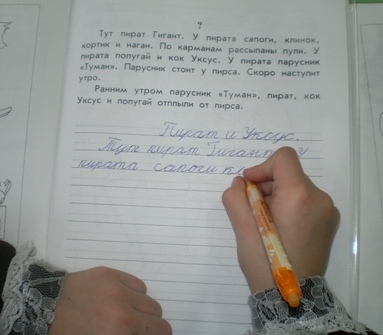 ?
Тут пират Гигант. У пирата сапоги, клинок,
кортик и наган. По карманам рассыпаны пули. У
пирата попугай и кок Уксус. У пирата парусник
«Туман». Парусник стоит у пирса. Скоро наступит
утро.
Ранним утром парусник «Туман», пират, кок
Уксус и попугай отплыли от пирса.
Пират и Уксус.
Тут пират Гигант. У
пирата сапоги кл